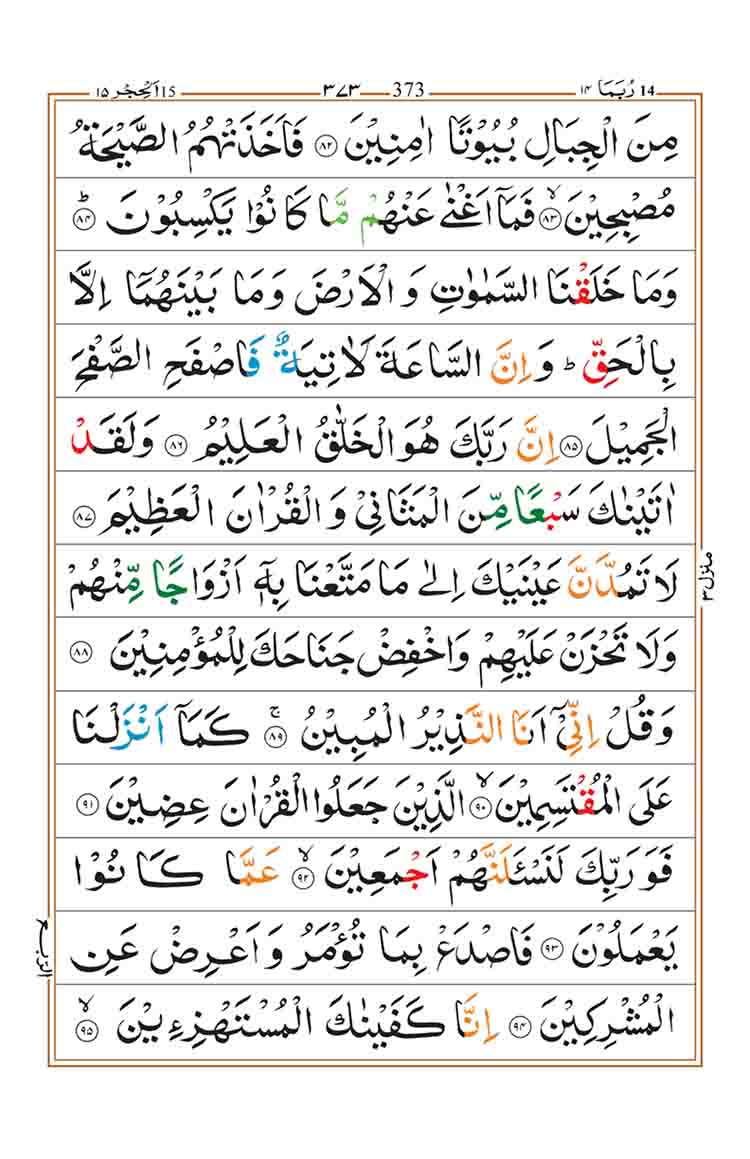 رُبَمَا ١٤ 14 373 ٣٧٣ اَلْحِجْر ١٥ 15
مِنَ الْجِبَالِ بُيُوْتًا اٰمِنِيْنَ ﴿٨٢﴾ فَاَخَذَتْهُمُ الصَّيْحَةُ
مُصْبِحِيْنَ ﴿٨٣﴾ۙ فَمَاۤ اَغْنٰى عَنْهُمْ مَّا كَانُوْا يَكْسِبُوْنَ ﴿٨٤﴾ؕ
وَمَا خَلَقْنَا السَّمٰوٰتِ وَ الْاَرْضَ وَمَا بَيْنَهُمَاۤ اِلَّا
بِالْحَقِّ ؕ وَ اِنَّ السَّاعَةَ لَاٰتِيَةٌ فَاصْفَحِ الصَّفْحَ
الْجَمِيْلَ ﴿٨٥﴾ اِنَّ رَبَّكَ هُوَ الْخَلّٰقُ الْعَلِيْمُ ﴿٨٦﴾ وَلَقَدْ
اٰتَيْنٰكَ سَبْعًا مِّنَ الْمَثَانِيْ وَ الْقُرْاٰنَ الْعَظِيْمَ ﴿٨٧﴾
لَا تَمُدَّنَّ عَيْنَيْكَ اِلٰى مَا مَتَّعْنَا بِهٖۤ اَزْوَاجًا مِّنْهُمْ
وَلَا تَحْزَنْ عَلَيْهِمْ وَاخْفِضْ جَنَاحَكَ لِلْمُؤْمِنِيْنَ ﴿٨٨﴾
وَقُلْ اِنِّيْۤ اَنَا النَّذِيْرُ الْمُبِيْنُ ﴿٨٩﴾ۚ كَمَاۤ اَنْزَلْنَا
عَلَى الْمُقْتَسِمِيْنَ ﴿٩٠﴾ۙ الَّذِيْنَ جَعَلُوا الْقُرْاٰنَ عِضِيْنَ ﴿٩١﴾
فَوَرَبِّكَ لَنَسْـَٔلَنَّهُمْ اَجْمَعِيْنَ ﴿٩٢﴾ۙ عَمَّا كَانُوْا
يَعْمَلُوْنَ ﴿٩٣﴾ فَاصْدَعْ بِمَا تُؤْمَرُ وَ اَعْرِضْ عَنِ
الْمُشْرِكِيْنَ ﴿٩٤﴾ اِنَّا كَفَيْنٰكَ الْمُسْتَهْزِءِيْنَ ﴿٩٥﴾ۙ
منزل ٣
الربع